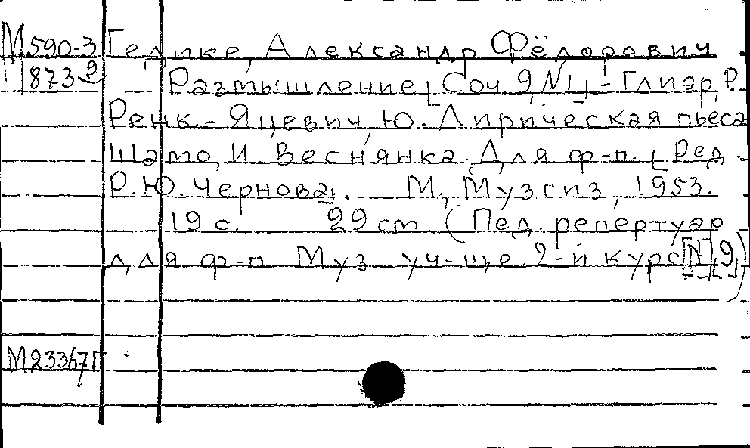 М590-3 Гедике, Александр Фёдорович
873 Размышление, Соч. 9, N1, - Глиэр, Р.
Ренк. - Яцевич, Ю. Лирическая пьеса
Шамо, И. Веснянка. Для ф-п. Ред.
Р. Ю. Чернова. М., Музгиз, 1953.
19 с. 29 cm (Пед. репертуар
для ф-п Муз. уч-ще 2-й курс [N] 9)